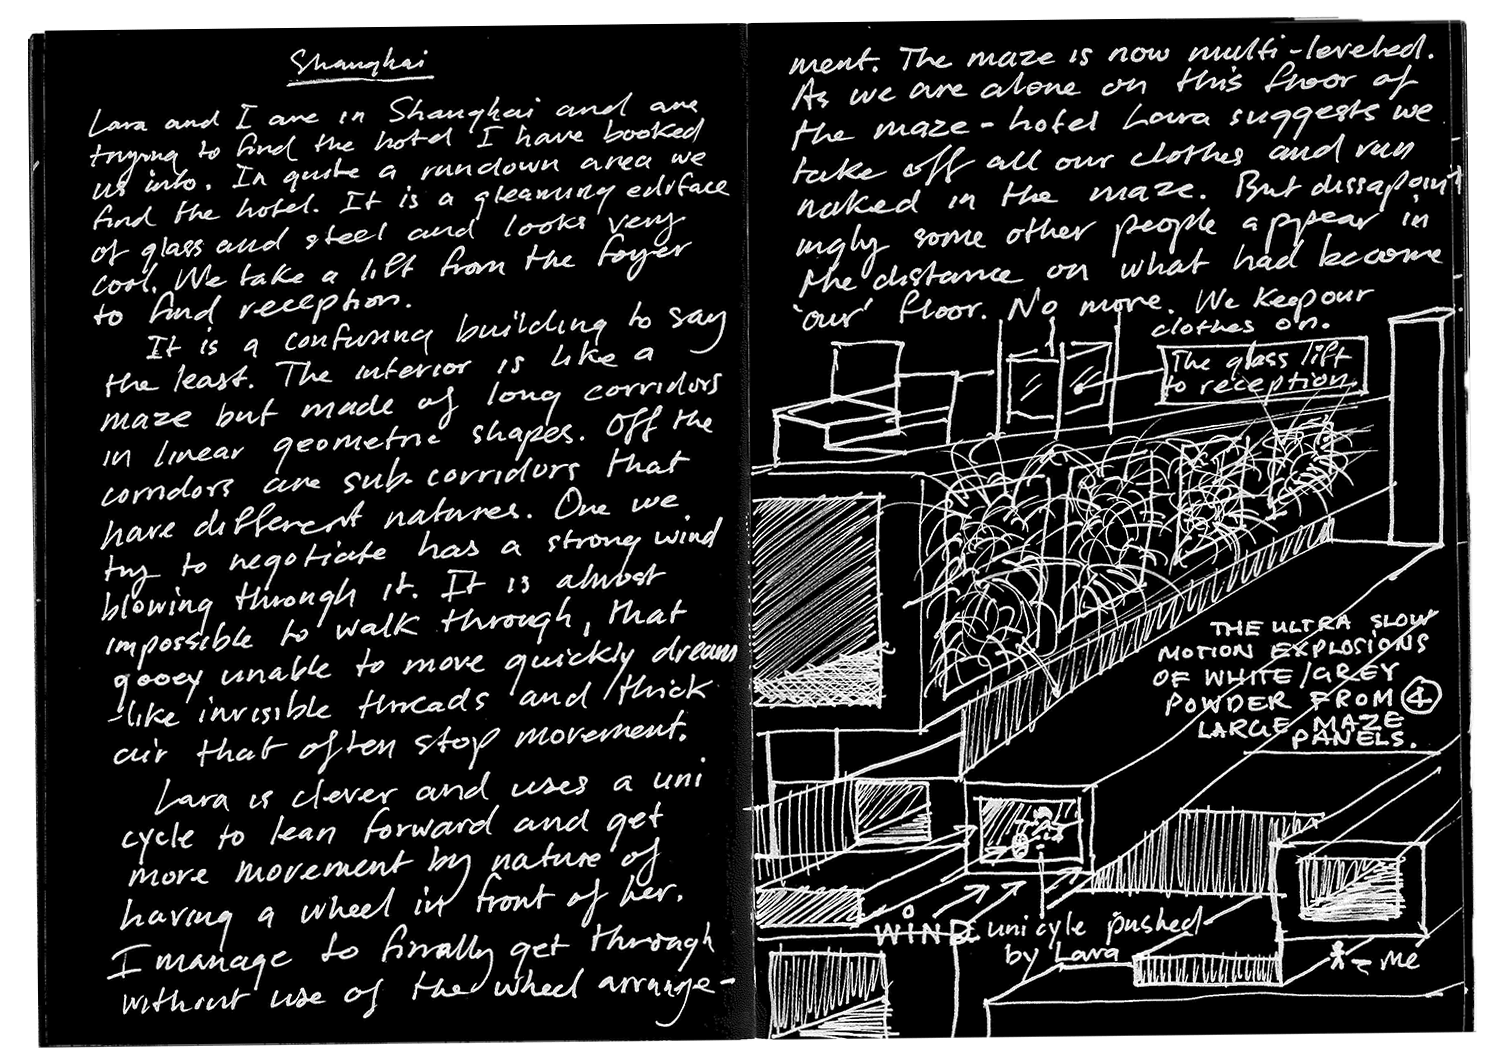 Shanghai
Lara and I are in Shanghai and are
trying to find the hotel I have booked
us into. In quite a rundown area we
find the hotel. It is a gleaming edifface
of glass and steel and looks very
cool. We take a lift from the foyer
to find reception.
It is a confusing building to say
the least. The interior is like a
maze but made of long corridors
in linear geometric shapes. Off the
corridors are sub-corridors that
have different natures. One we
try to negotiate has a strong wind
blowing through it. It is almost
impossible to walk through, that
gooey unable to move quickly dream
-like invisible threads and thick
air that often stop movement.
Lara is clever and uses a uni
cycle to lean forward and get
more movement by nature of
having a wheel in front of her.
I manage to finally get through
without use of the wheel arrange-
ment. The maze is now multi-leveled.
As we are alone on this floor of
the maze-hotel Lara suggests we
take off all our clothes and run
naked in the maze. But dissapoint
ingly some other people appear in
the distance on what had become
'our' floor. No more. We keep our
clothes on.
The glass lift
to reception.
THE ULTRA SLOW
MOTION EXPLOSIONS
OF WHITE/GREY
POWDER FROM 4
LARGE MAZE
PANELS.
WIND
unicyle pushed
by Lara
me